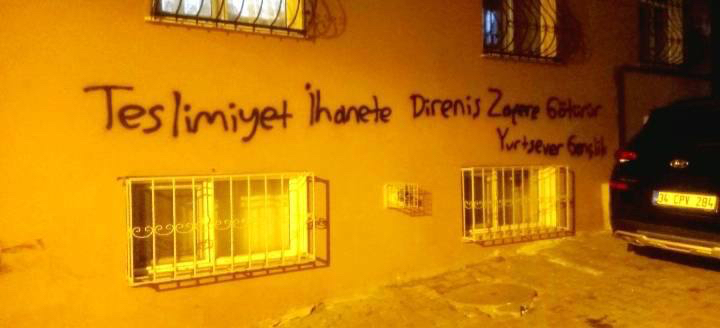 Teslimiyet İhanete Direniş Zafere Götürür
Yurtsever Gençlik
34 CPV 284